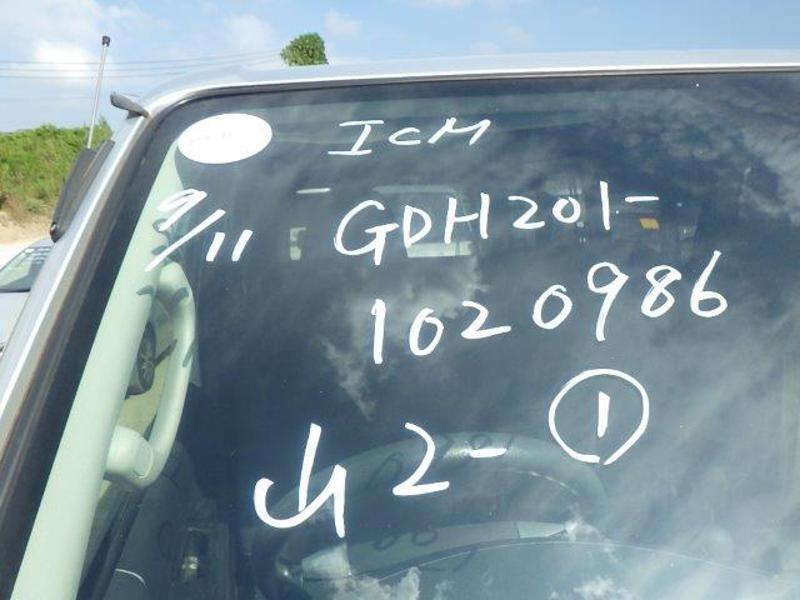 ICM
9/11
GDH201-
1020986
山2-①